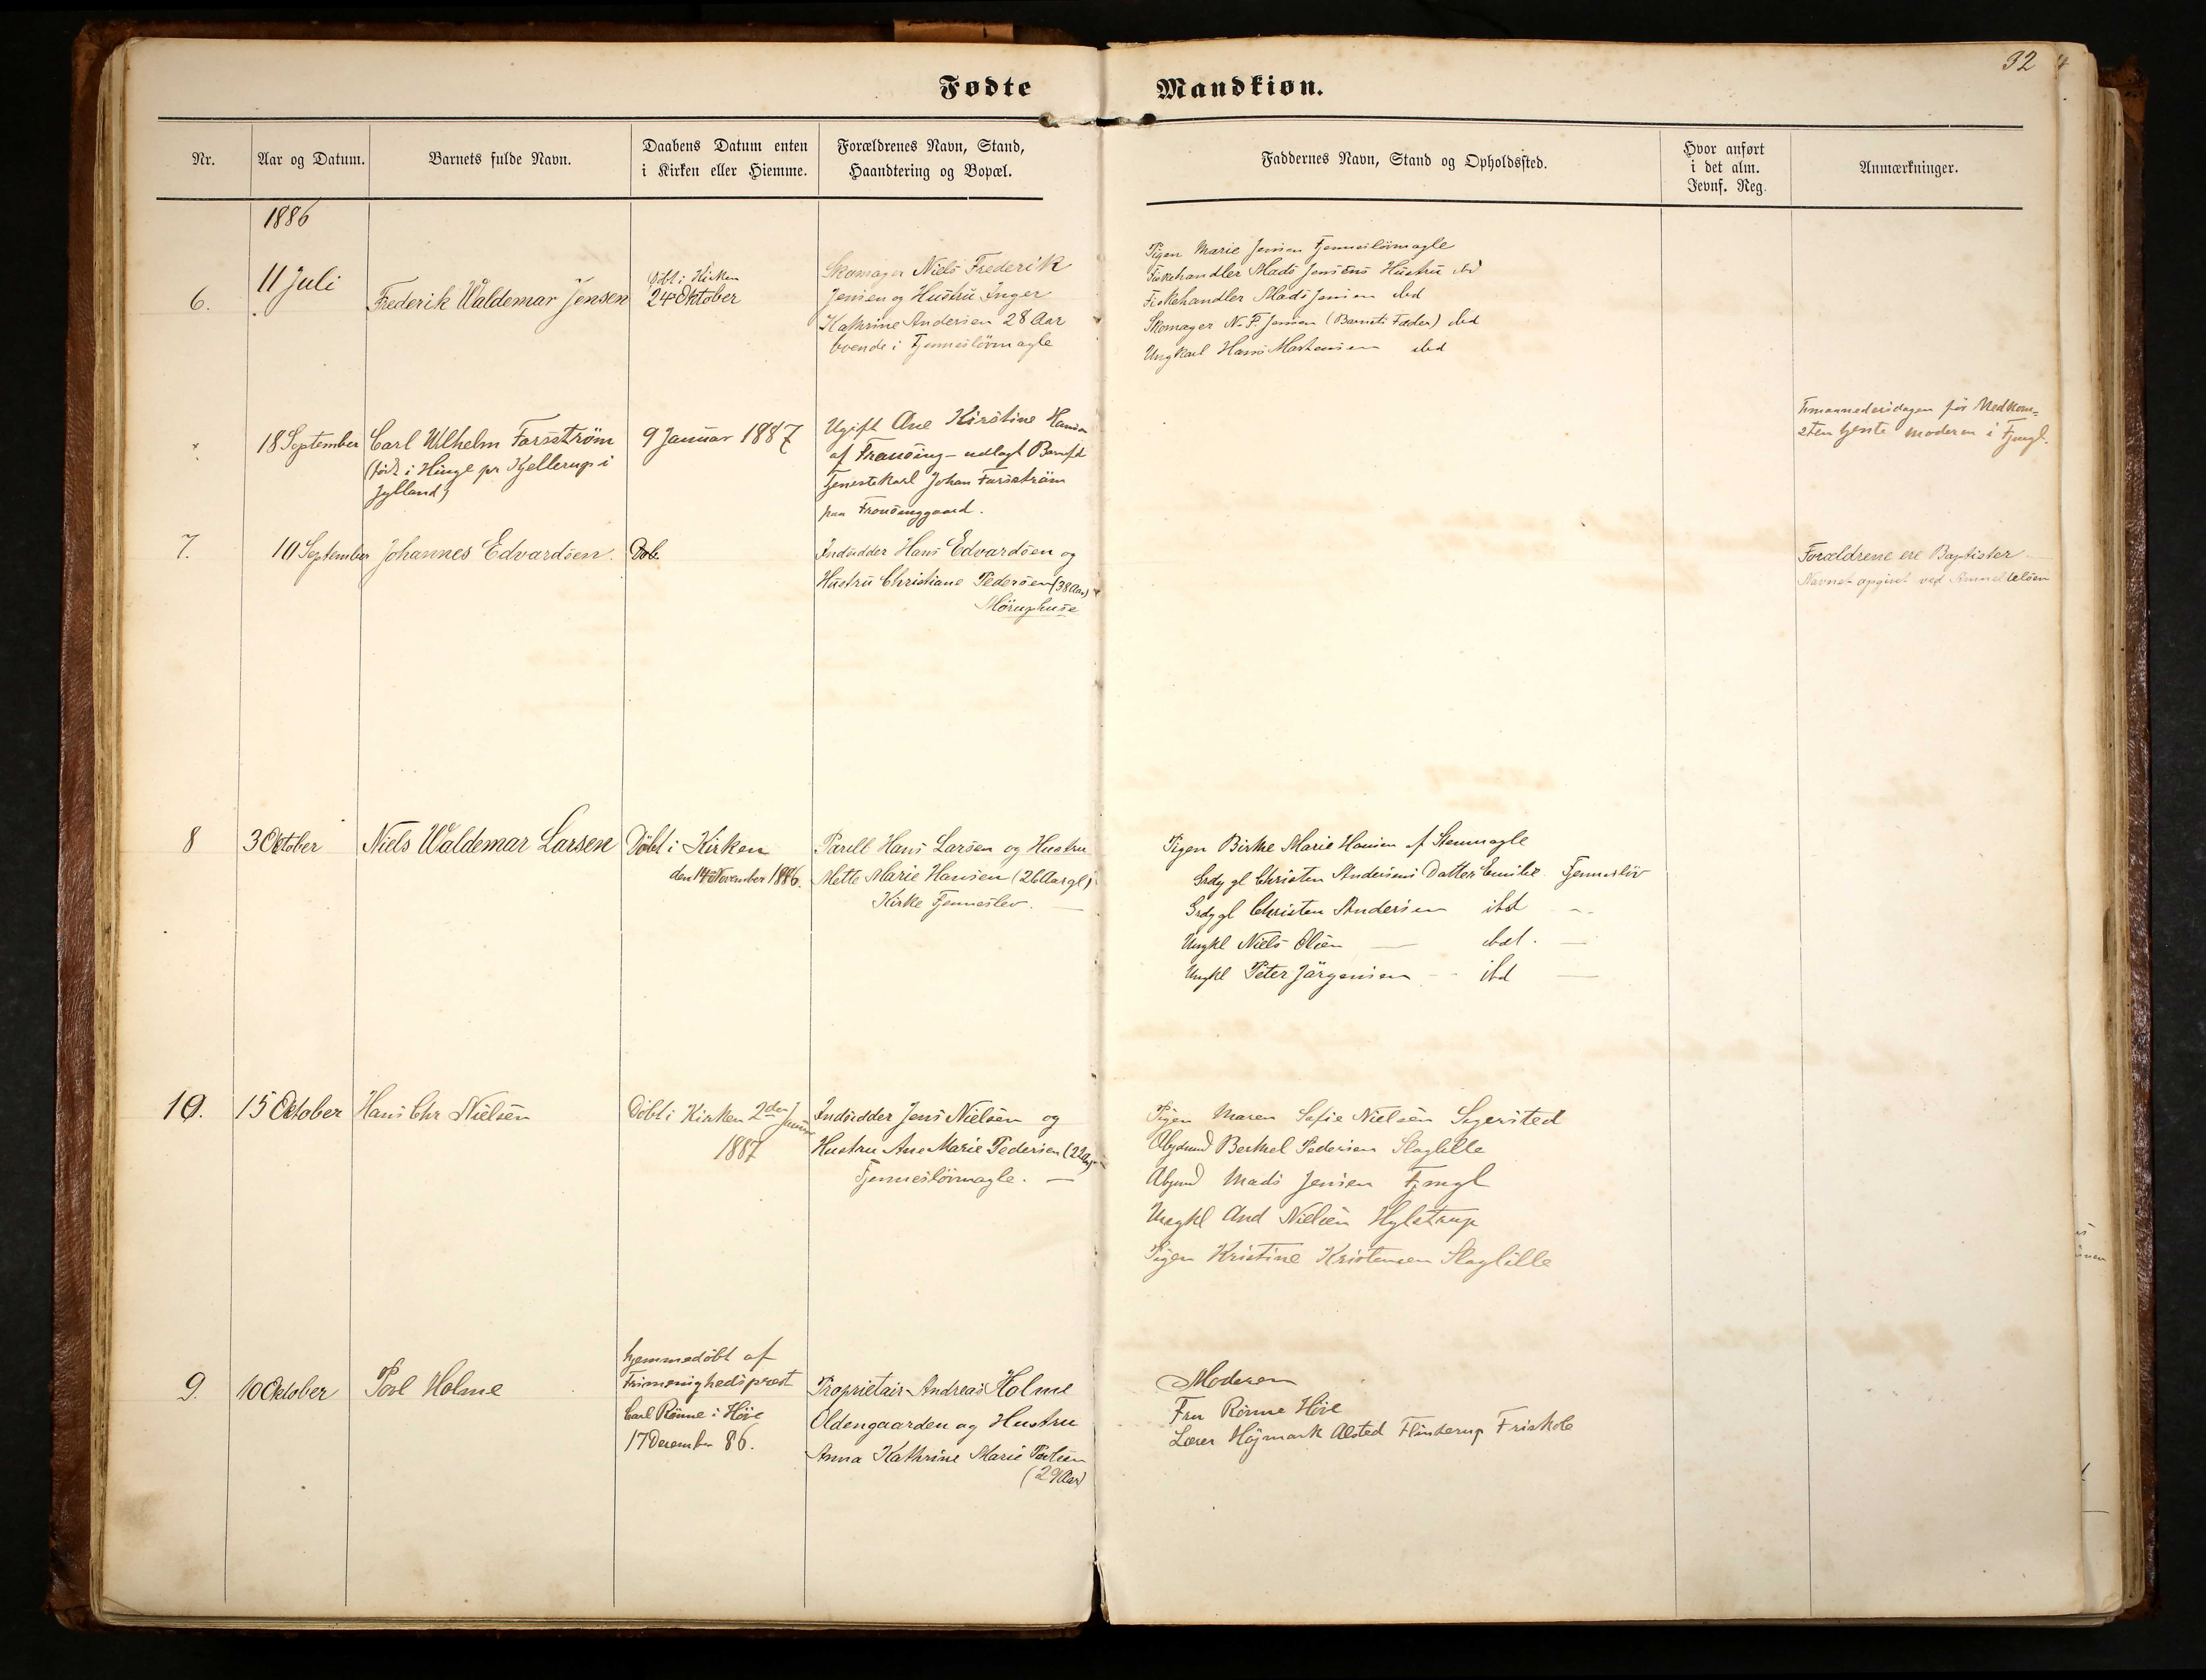 32
Fødte Mandkiøn.
Nr.
Aar og Datum.
Barnets fulde Navn.
Daabens Datum enten
i Kirken eller Hiemme.
Forældrenes Navn, Stand,
Haandtering og Bopæl.
Faddernes Navn, Stand og Opholdssted.
Hvor anført
i det alm.
Jevnf. Reg.
Anmærkninger.
1886
6.
11 Juli
Frederik Waldemar Jensen
Døbt i Kirken
24 Oktober
Skomager Niels Frederik
Jensen og Hustru Inger
Kathrine Andersen 28 Aar
boende i Fjenneslövmagle
Pigen Marie Jensen Fjenneslövmagle
Fiskehandler Mads Jensens Hustru ibd
Fiskehandler Mads Jensen ibd
Skomager N. F. Jensen (Barnets Fader) ibd
Ungkarl Hans Mortensen ibd
18 September
Carl Wilhelm Forsström
(født i Hinge pr Kjellerup i
Jylland)
9 Januar 1887
Ugift Ane Kirstine Hansen
af - udlagt Barnfd
Tjenestekarl Johan Forsström
paa
Timaanedersdagen før Nedkom=
sten tjente Moderen i Fjmgl.
7.
10 September
Johannes Edvardsen.
Døb.
Indsidder Hans Edvardsen og
Hustru Christiane Pedersen (38 Aar)
Möruphuse
Forældrene ere Baptister
Navnet opgivet ved Anmeldelsen
8
3 Oktober
Niels Waldemar Larsen
Döbt i Kirken
den 14 November 1886.
Parcell Hans Larsen og Hustru
Mette Marie Hansen (26 Aar gl)
Kirke Fjenneslev.
Pigen Birthe Marie Hansen af Stenmagle
Grdg gl Christen Andersens Datter Emilie Fjenneslöv
Grdg gl Christen Andersen ibd
Ungkl Niels Olsen ibd.
Ungkl Peter Jörgensen ibd
10.
15 Oktober
Hans Chr Nielsen
Döbt i Kirken 2den Januar
1887
Indsidder Jens Nielsen og
Hustru Ane Marie Pedersen (22
Fjenneslövmagle.
Pigen Maren Sofie Nielsen Sigersted
Abgdmd Berthel Pedersen Slaglille
Abgmd Mads Jensen Fjmgl
Ungkl And Nielsen Hylstrup
Pigen Kristine Kristensen Slaglille
9.
10 Oktober
Povl Holme
hjemmedöbt af
Frimenighedspræst
Carl Rönne i Höve
17 December 86.
Proprietair Andreas Holme
Oldengaarden og Hustru
Anna Kathrine Marie
(29 Aar)
Moderen
Fru Rönne Höve
Lærer Højmark Alsted Flinterup Friskole